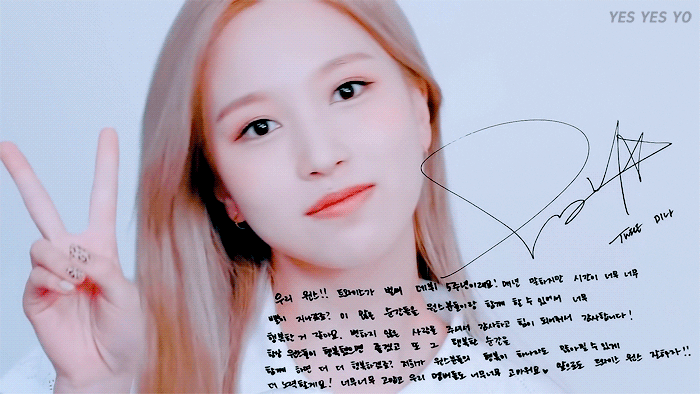 YES YES YO
TWICE 미나
우리 원스!! 트와이스가 벌써 데뷔 5주년이래요! 매년 말하지만 시간이 너무 너무
빨리 지나갔죠? 이 많은 순간들을 원스분들이랑 함께 할 수 있어서 너무
행복한 거 같아요. 변하지 않는 사랑을 주셔서 감사하고 힘이 되어줘서 감사합니다!
항상 원스들이 행복했으면 좋겠고 또 그 행복한 순간을
함께 하면 더 더 행복하겠죠? 저희가 원스분들의 행복이 하나라도 많아질 수 있게
더 노력할게요! 너무너무 고맙고 우리 멤버들도 너무너무 고마워요 앞으로도 트와이스 원스 같이가자!!